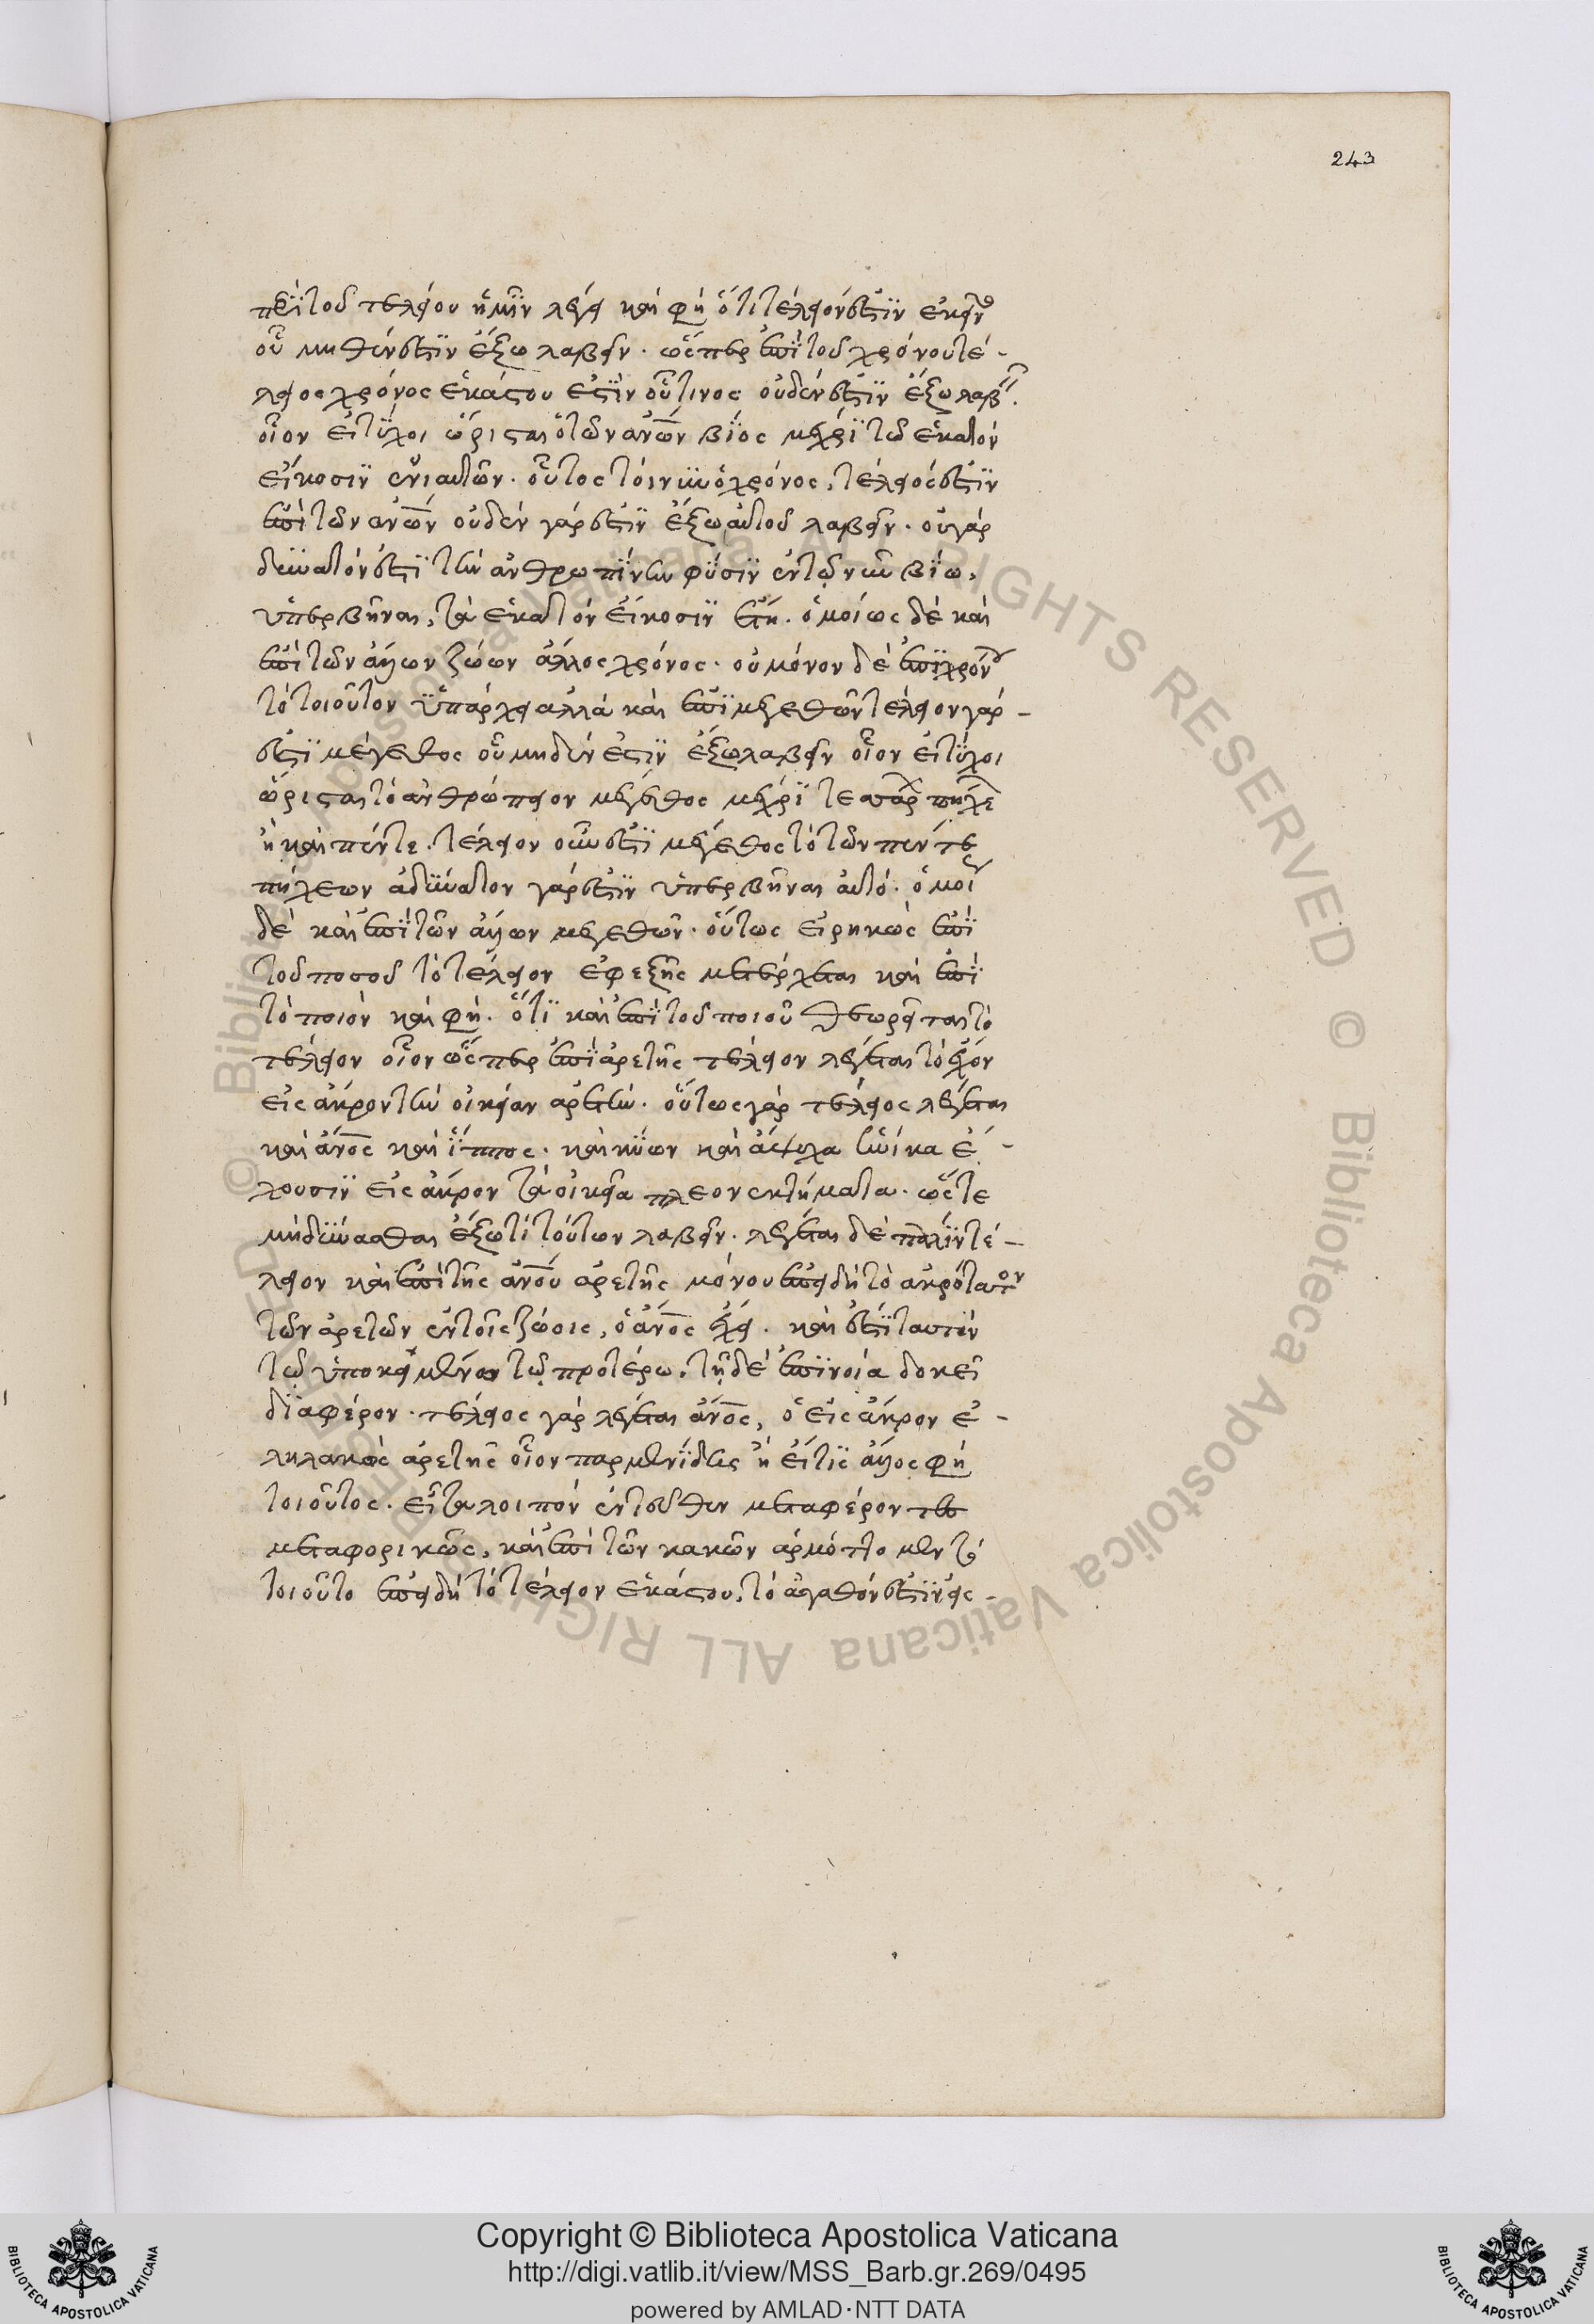 243
περὶ τοῦ τελείου ἡμῖν λέγει καὶ φησὶ ὅτι τέλειόν ἐστιν ἐκεῖνο
οὗ μηθέν ἐστιν ἔξω λαβεῖν. ὥσπερ ἐπὶ τοῦ χρόνου τέ-
λειος χρόνος ἑκάστου ἐστὶν οὗτινος οὐδέν ἐστιν ἔξω λαβεῖν.
οἷον εἰ τύχοι ὥρισται ὁ τῶν ἀνῶν βίος μέχρι τῶ ἑκατὸν
εἴκοσιν ἐνιαυτῶν. οὗτος τοίνυν ὁ χρόνος, τέλειός ἐστιν
ἐπὶ τῶν ἀνῶν οὐδὲν γάρ ἐστιν ἔξω αὐτοῦ λαβεῖν. οὐ γὰρ
δυνατόν ἐστι τὴν ἀνθρωπίνην φύσιν ἐν τῷ νῦν βίω,
ὑπερβῆναι, τὰ ἑκατὸν εἴκοσιν ἔτη. ὁμοίως δὲ καὶ
ἐπὶ τῶν ἄλλων ζώων ἄλλος χρόνος. οὐ μόνον δὲ ἐπὶ χρόνου
τὸ τοιοῦτον ὑπάρχει ἀλλὰ καὶ ἐπὶ μεγεθῶν τέλειον γάρ-
ἐστι μέγεθος οὗ μηδέν ἐστιν ἔξω λαβεῖν οἷον εἰ τύχοι
ὥρισται τὸ ἀνθρώπειον μέγεθος μέχρι τεσσάρων πήχεων
ἢ καὶ πέντε. τέλειον οὖν ἐστι μέγεθος τὸ τῶν πέντε
πήχεων ἀδύνατον γάρ ἐστιν ὑπερβῆναι αὐτό. ὁμοίως
δὲ καὶ ἐπὶ τῶν ἄλλων μεγεθῶν. οὕτως εἰρηκὼς ἐπὶ
τοῦ ποσοῦ τὸ τέλειον ἐφεξῆς μετέρχεται καὶ ἐπὶ
τὸ ποιὸν καὶ φησὶ. ὅτι καὶ ἐπὶ τοῦ ποιοῦ θεωρεῖται τὸ
τέλειον οἷον ὥσπερ ἐπὶ ἀρετῆς τέλειον λέγεται τὸ ἔχον
εἰς ἄκρον τὴν οἰκείαν ἀρετήν. οὕτως γὰρ τέλειος λέγεται
καὶ ἄνος καὶ ἵππος. καὶ κύων καὶ ἄλλα ἡνίκα ἔ-
χουσιν εἰς ἄκρον τὰ οἰκεῖα πλεονεκτήματα. ὥστε
μὴ δύνασθαι ἔξω τι τούτων λαβεῖν. λέγεται δὲ πάλιν τέ-
λειον καὶ ἐπὶ τῆς ἀνου ἀρετῆς μόνου ἐπειδὴ τὸ ἀκρότατον
τῶν ἀρετῶν ἐν τοῖς ζώοις, ὁ ἄνος ἔχει. καὶ ἔστι ταυτὸν
τῶ ὑποκειμένω τῷ προτέρω. τῇ δὲ ἐπινοία δοκεῖ
διαφέρον. τέλειος γὰρ λέγεται ἄνος, ὁ εἰς ἄκρον ἐ-
ληλακὼς ἀρετῆς οἷον παρμενίδης ἢ εἴ τις ἄλλος φησὶ
τοιοῦτος. εἶτα λοιπὸν ἐντεῦθεν μεταφέροντες
μεταφορικῶς, καὶ ἐπὶ τῶν κακῶν ἁρμόττομεν τὸ
τοιοῦτο ἐπειδὴ τὸ τέλειον ἑκάστου, τὸ ἀγαθόν ἐστιν εἰς-
Copyright © Biblioteca Apostolica Vaticana
http://digi.vatlib.it/view/MSS_Barb.gr.269/0495
powered by AMLAD·NTT DATA
BIBLIOTECA APOSTOLICA VATICANA
BIBLIOTECA APOSTOLICA VATICANA